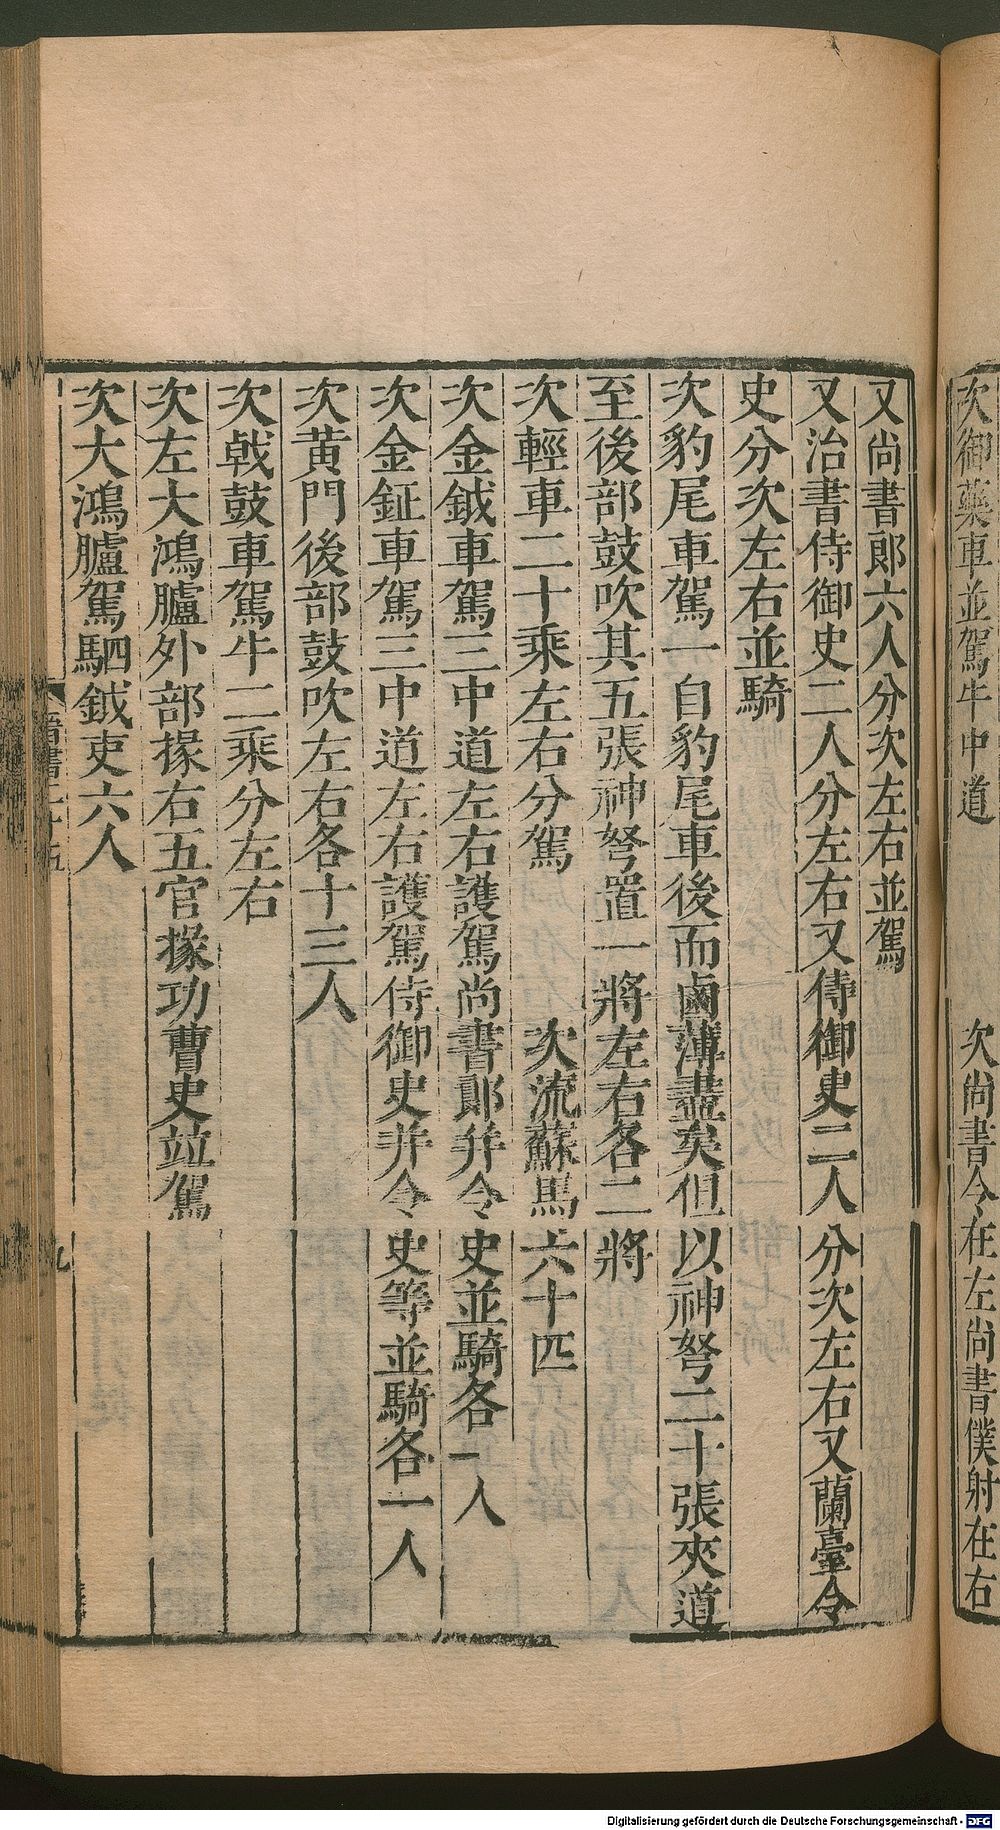 次御藥車並駕牛中道　次尚書令在左尚書僕射在右
又尚書郎六人分次左右並駕
又治書侍御史二人分左右又侍御史二人分次左右又蘭臺令
史分次左右並騎
次豹尾車駕一自豹尾車後而鹵薄盡矣但以神弩二十張夾道
至後部鼓吹其五張神弩置一將左右各二將
次輕車二十乘左右分駕　次流蘇馬六十匹
次金鉞車駕三中道左右護駕尚書郎并令史並騎各一人
次金鉦車駕三中道左右護駕侍御史并令史等並騎各一人
次黄門後部鼓吹左右各十三人
次戟鼓車駕牛二乘分左右
次左大鴻臚外部掾右五官掾功曹史竝駕
次大鴻臚駕駟鉞吏六人
晉書二十五
九
Digitalisierung gefördert durch die Deutsche Forschungsgemeinschaft - DFG